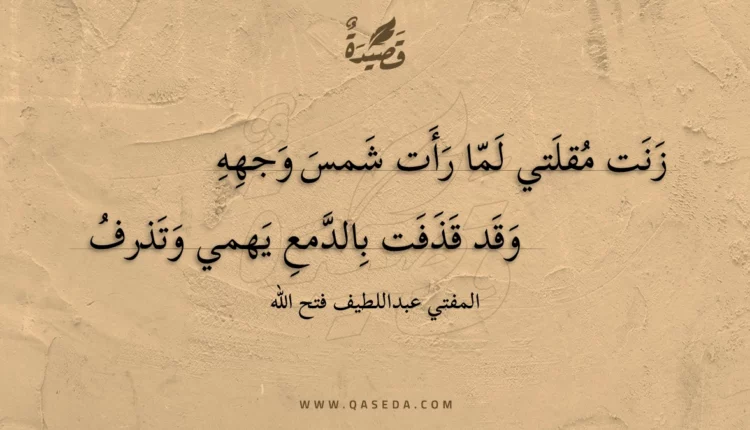 قَصِيدَةٌ
زَنَت مُقلَتي لَمّا رَأَت شَمسَ وَجهِهِ
وَقَد قَذَفَت بِالدَّمعِ يَهمي وَتَذرفُ
المفتي عبداللطيف فتح الله
WWW.QASEDA.COM